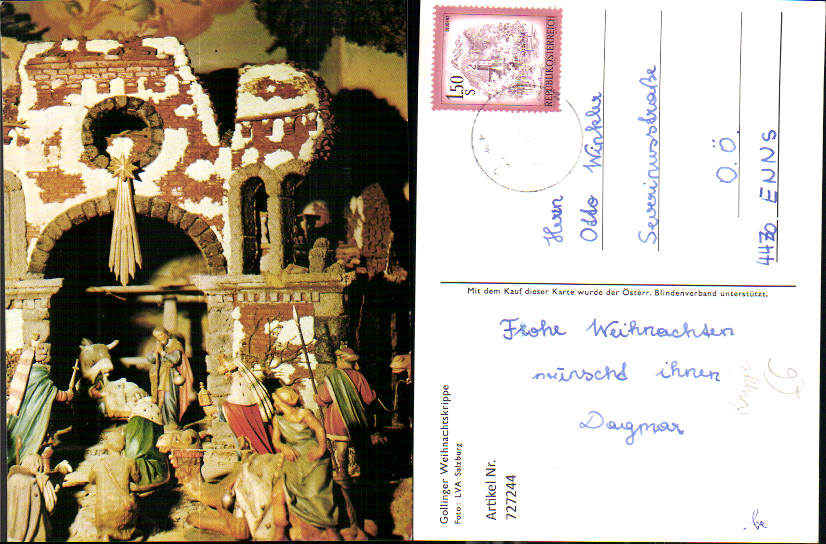 1.50
S
REPUBLIK ÖSTERREICH
Herrn
Otto Winkler
Severinusstraße
O.Ö.
4470 ENNS
Mit dem Kauf dieser Karte wurde der Österr. Blindenverband unterstützt.
Frohe Weihnachten
wünscht ihnen
Dagmar
Krippe
Gollinger Weihnachtskrippe
Foto: LVA Salzburg
Artikel Nr.
727244